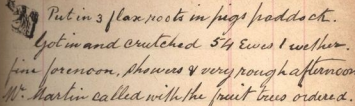 Put in 3 flax roots in pigs paddock.
Got in and crutched 54 Ewes 1 wether.
fine forenoon, showers & very rough afternoon
Mr. Martin called with the fruit trees ordered